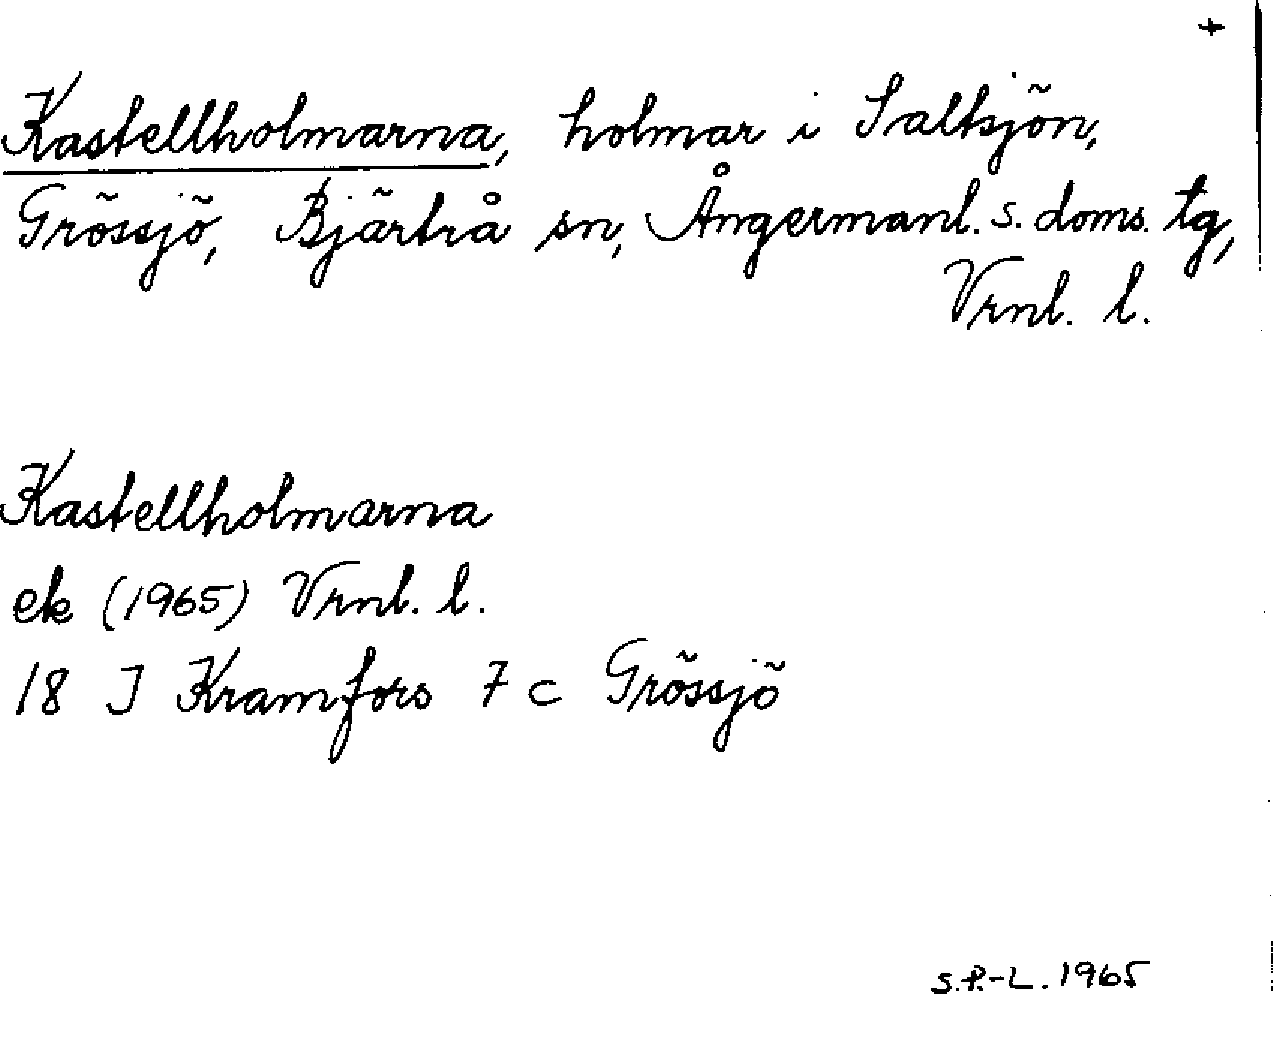 +
Kastellholmarna, holmar i Saltsjön,
Grössjö, Bjärtrå sn, Ångermanl. s. doms. tg,
Vrnl. l.
Kastellholmarna
ek (1965) Vrnl. l.
18 J Kramfors 7 c Grössjö
S.P.-L. 1965